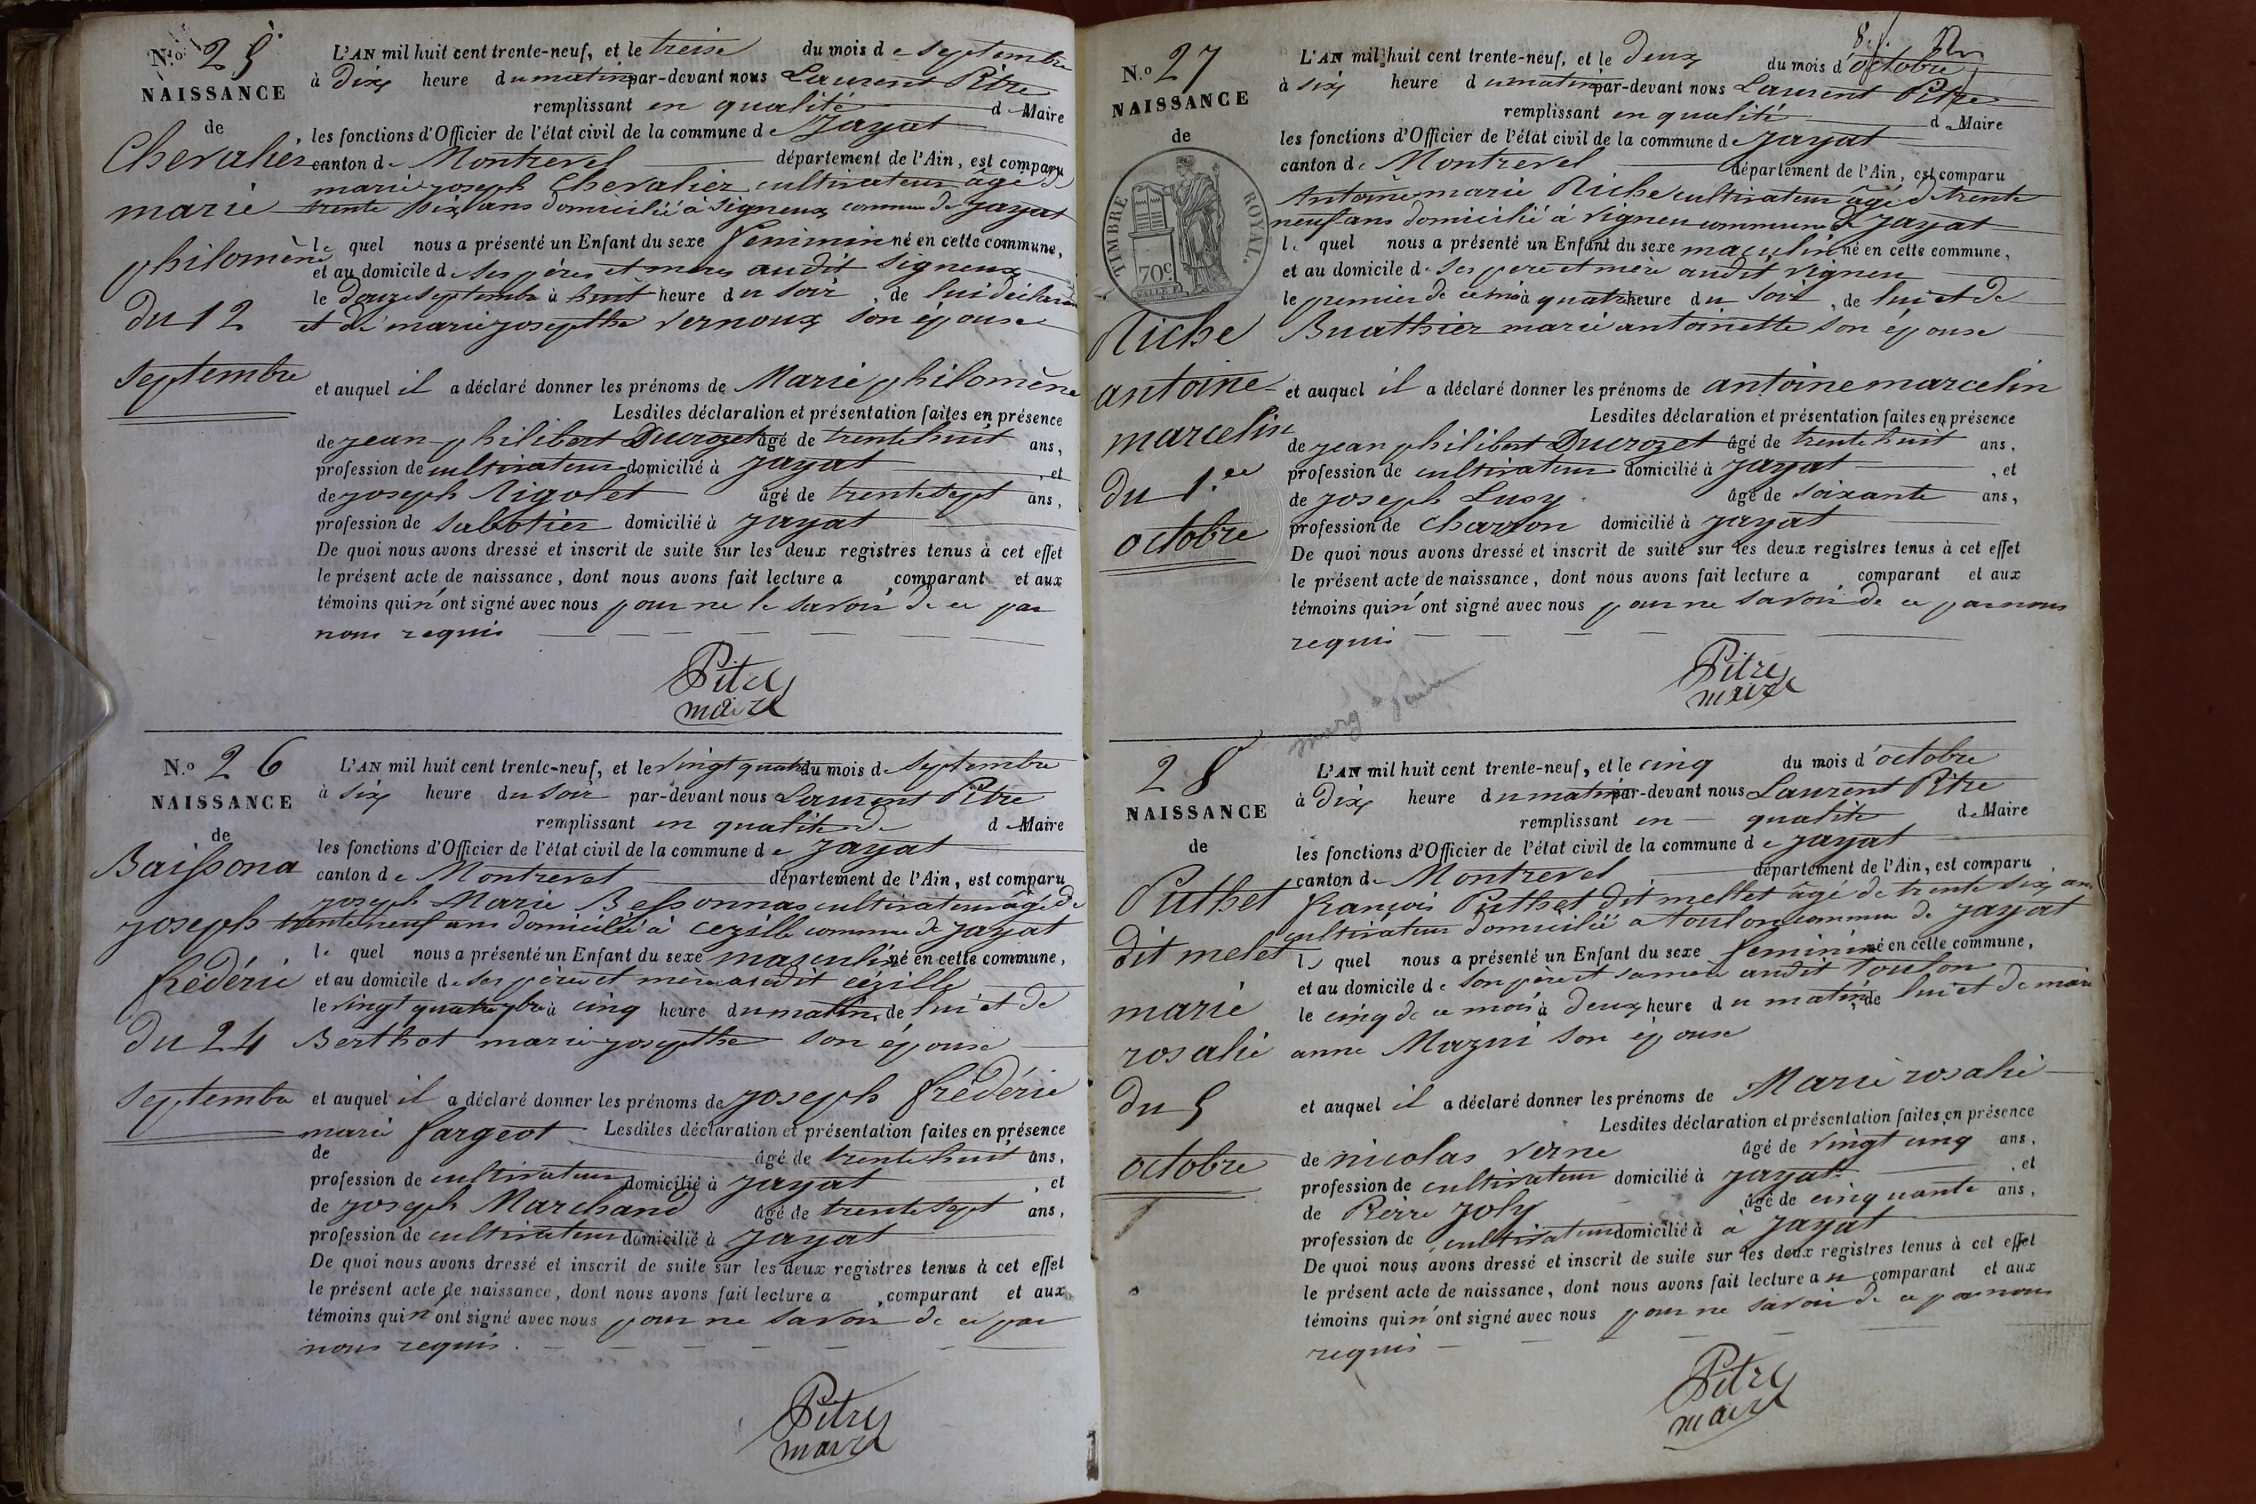 N.º 25
NAISSANCE
de
Chevalier
marie
philomène
du 12
septembre
L'AN mil huit cent trente-neuf, et le treise du mois de septembre
à dix heure du matin par-devant nous Laurent Pitre
remplissant en qualité de Maire
les fonctions d'Officier de l'état civil de la commune de Jayat
canton de Montrevel département de l'Ain, est comparu
marie joseph Chevalier cultivateur âgé de
trente six ans domicilié à Signeux commune de Jayat
le quel nous a présenté un Enfant du sexe feminin né en cette commune,
et au domicile de ses pères et mères audit Signeux
le douze septembre à huit heure du soir, de lui déclarant
et de marie josepthe Vernoux son épouse
et auquel il a déclaré donner les prénoms de Marie philomène
Lesdites déclaration et présentation faites en présence
de jean philibert Ducrozet âgé de trente huit ans,
profession de cultivateur domicilié à Jayat, et
de joseph Rigolet âgé de trente sept ans,
profession de sabotier domicilié à Jayat
De quoi nous avons dressé et inscrit de suite sur les deux registres tenus à cet effet
le présent acte de naissance, dont nous avons fait lecture a comparant et aux
témoins qui n'ont signé avec nous pour ne le savoir de ce par
nous requis
Pitre
maire
N.º 26
NAISSANCE
de
Baissona
joseph
frédéric
du 24
septembre
L'AN mil huit cent trente-neuf, et le vingt quatre du mois de septembre
à six heure du soir par-devant nous Laurent Pitre
remplissant en qualité de de Maire
les fonctions d'Officier de l'état civil de la commune de Jayat
canton de Montrevel département de l'Ain, est comparu
joseph Marie Bessonnas cultivateur âgé de
trente neuf ans domicilié à Cezille commune de Jayat
le quel nous a présenté un Enfant du sexe masculin né en cette commune,
et au domicile de ses père et mère audit cézille
le vingt quatre 7bre à cinq heure du matin, de lui et de
Berthot marie josepthe son épouse
et auquel il a déclaré donner les prénoms de joseph frédéric
marie fargeot Lesdites déclaration et présentation faites en présence
de âgé de trente huit ans,
profession de cultivateur domicilié à Jayat, et
de joseph Marchand âgé de trente sept ans,
profession de cultivateur domicilié à Jayat
De quoi nous avons dressé et inscrit de suite sur les deux registres tenus à cet effet
le présent acte de naissance, dont nous avons fait lecture a comparant et aux
témoins qui n'ont signé avec nous pour ne savoir de ce par
nous requis
Pitre
maire
N.º 27
NAISSANCE
de
TIMBRE ROYAL.
70c
Riche
antoine
marcelin
du 1.er
octobre
L'AN mil huit cent trente-neuf, et le deux du mois d'octobre
à six heure du matin par-devant nous Laurent Pitre
remplissant en qualité de Maire
les fonctions d'Officier de l'état civil de la commune de Jayat
canton de Montrevel département de l'Ain, est comparu
Antoine marie Riche cultivateur âgé d trente
neuf ans domicilié à Vigneu commune de Jayat
le quel nous a présenté un Enfant du sexe masculin né en cette commune,
et au domicile de ses pere et mère audit Vigneu
le premier de ce mois à quatre heure du soir, de lui et de
Buathier marie antoinette son épouse
et auquel il a déclaré donner les prénoms de antoine marcelin
Lesdites déclaration et présentation faites en présence
de jean philibert Ducrozet âgé de trente huit ans,
profession de cultivateur domicilié à Jayat, et
de joseph Lusy âgé de soixante ans,
profession de charron domicilié à Jayat
De quoi nous avons dressé et inscrit de suite sur les deux registres tenus à cet effet
le présent acte de naissance, dont nous avons fait lecture a comparant et aux
témoins qui n'ont signé avec nous pour ne savoir de ce par nous
requis
Pitre
maire
28
NAISSANCE
de
Puthet
dit melet
marie
rosalie
du 5
octobre
L'AN mil huit cent trente-neuf, et le cinq du mois d'octobre
à dix heure du matin par-devant nous Laurent Pitre
remplissant en qualité de Maire
les fonctions d'Officier de l'état civil de la commune de Jayat
canton de Montrevel département de l'Ain, est comparu
françois Puthet dit mellet âgé de trente six ans
cultivateur domicilié a toulon commune de Jayat
le quel nous a présenté un Enfant du sexe feminin né en cette commune,
et au domicile de son père et sa mère audit Toulon
le cinq de ce mois à deux heure du matin, de lui et de marie
anne Mazui son épouse
et auquel il a déclaré donner les prénoms de Marie rosalie
Lesdites déclaration et présentation faites en présence
de nicolas Verne âgé de vingt cinq ans,
profession de cultivateur domicilié à Jayat, et
de Pierre Joly âgé de cinquante ans,
profession de cultivateur domicilié à a Jayat
De quoi nous avons dressé et inscrit de suite sur les deux registres tenus à cet effet
le présent acte de naissance, dont nous avons fait lecture au comparant et aux
témoins qui n'ont signé avec nous pour ne savoir de ce par nous
requis
Pitre
maire